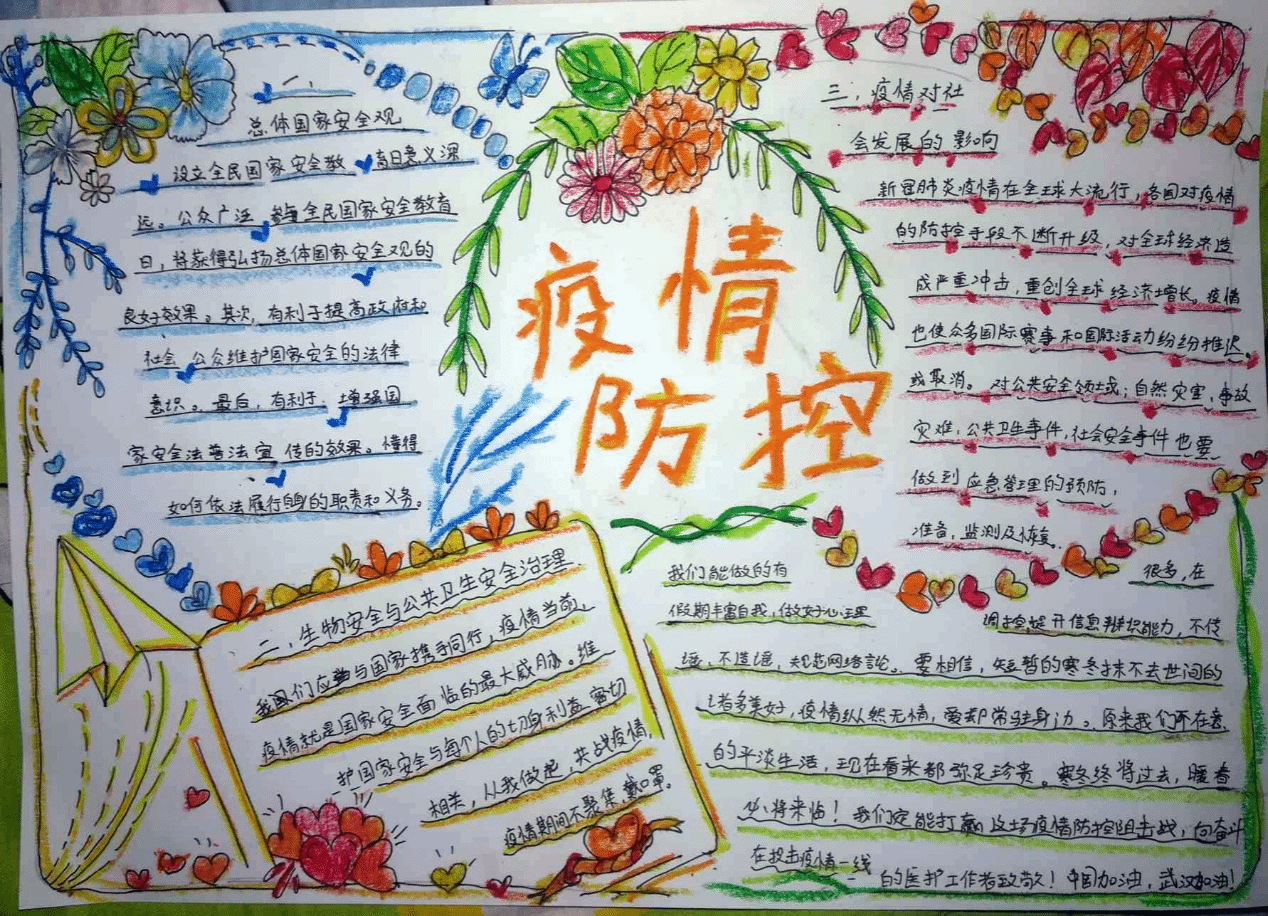 一、
总体国家安全观
设立全民国家安全教育日意义深
远。公众广泛参与全民国家安全教育
日，将获得弘扬总体国家安全观的
良好效果。其次，有利于提高政府和
社会公众维护国家安全的法律
意识。最后，有利于增强国
家安全法普法宣传的效果。懂得
如何依法履行自身的职责和义务。
疫情
防控
三、疫情对社
会发展的影响
新冠肺炎疫情在全球大流行，各国对疫情
的防控手段不断升级，对全球经济造
成严重冲击，重创全球经济增长。疫情
也使众多国际赛事和国际活动纷纷推迟
或取消。对公共安全领域；自然灾害，事故
灾难，公共卫生事件，社会安全事件也要
做到应急管理的预防，
准备，监测及恢复。
二、生物安全与公共卫生安全治理
我们应当与国家携手同行，疫情当前，
疫情就是国家安全面临的最大威胁。维
护国家安全与每个人的切身利益密切
相关，从我做起，共战疫情，
疫情期间不聚集，戴口罩。
我们能做的有很多，在
假期丰富自我，做好心理
调控，提升信息辨识能力，不传
谣，不造谣，规范网络言论。要相信，短暂的寒冬抹不去世间的
诸多美好，疫情纵然无情，爱却常驻身边。原来我们不在意
的平淡生活，现在看来都弥足珍贵。寒冬终将过去，暖春
必将来临！我们定能打赢这场疫情防控阻击战，向奋斗
在抗击疫情一线的医护工作者致敬！中国加油，武汉加油！